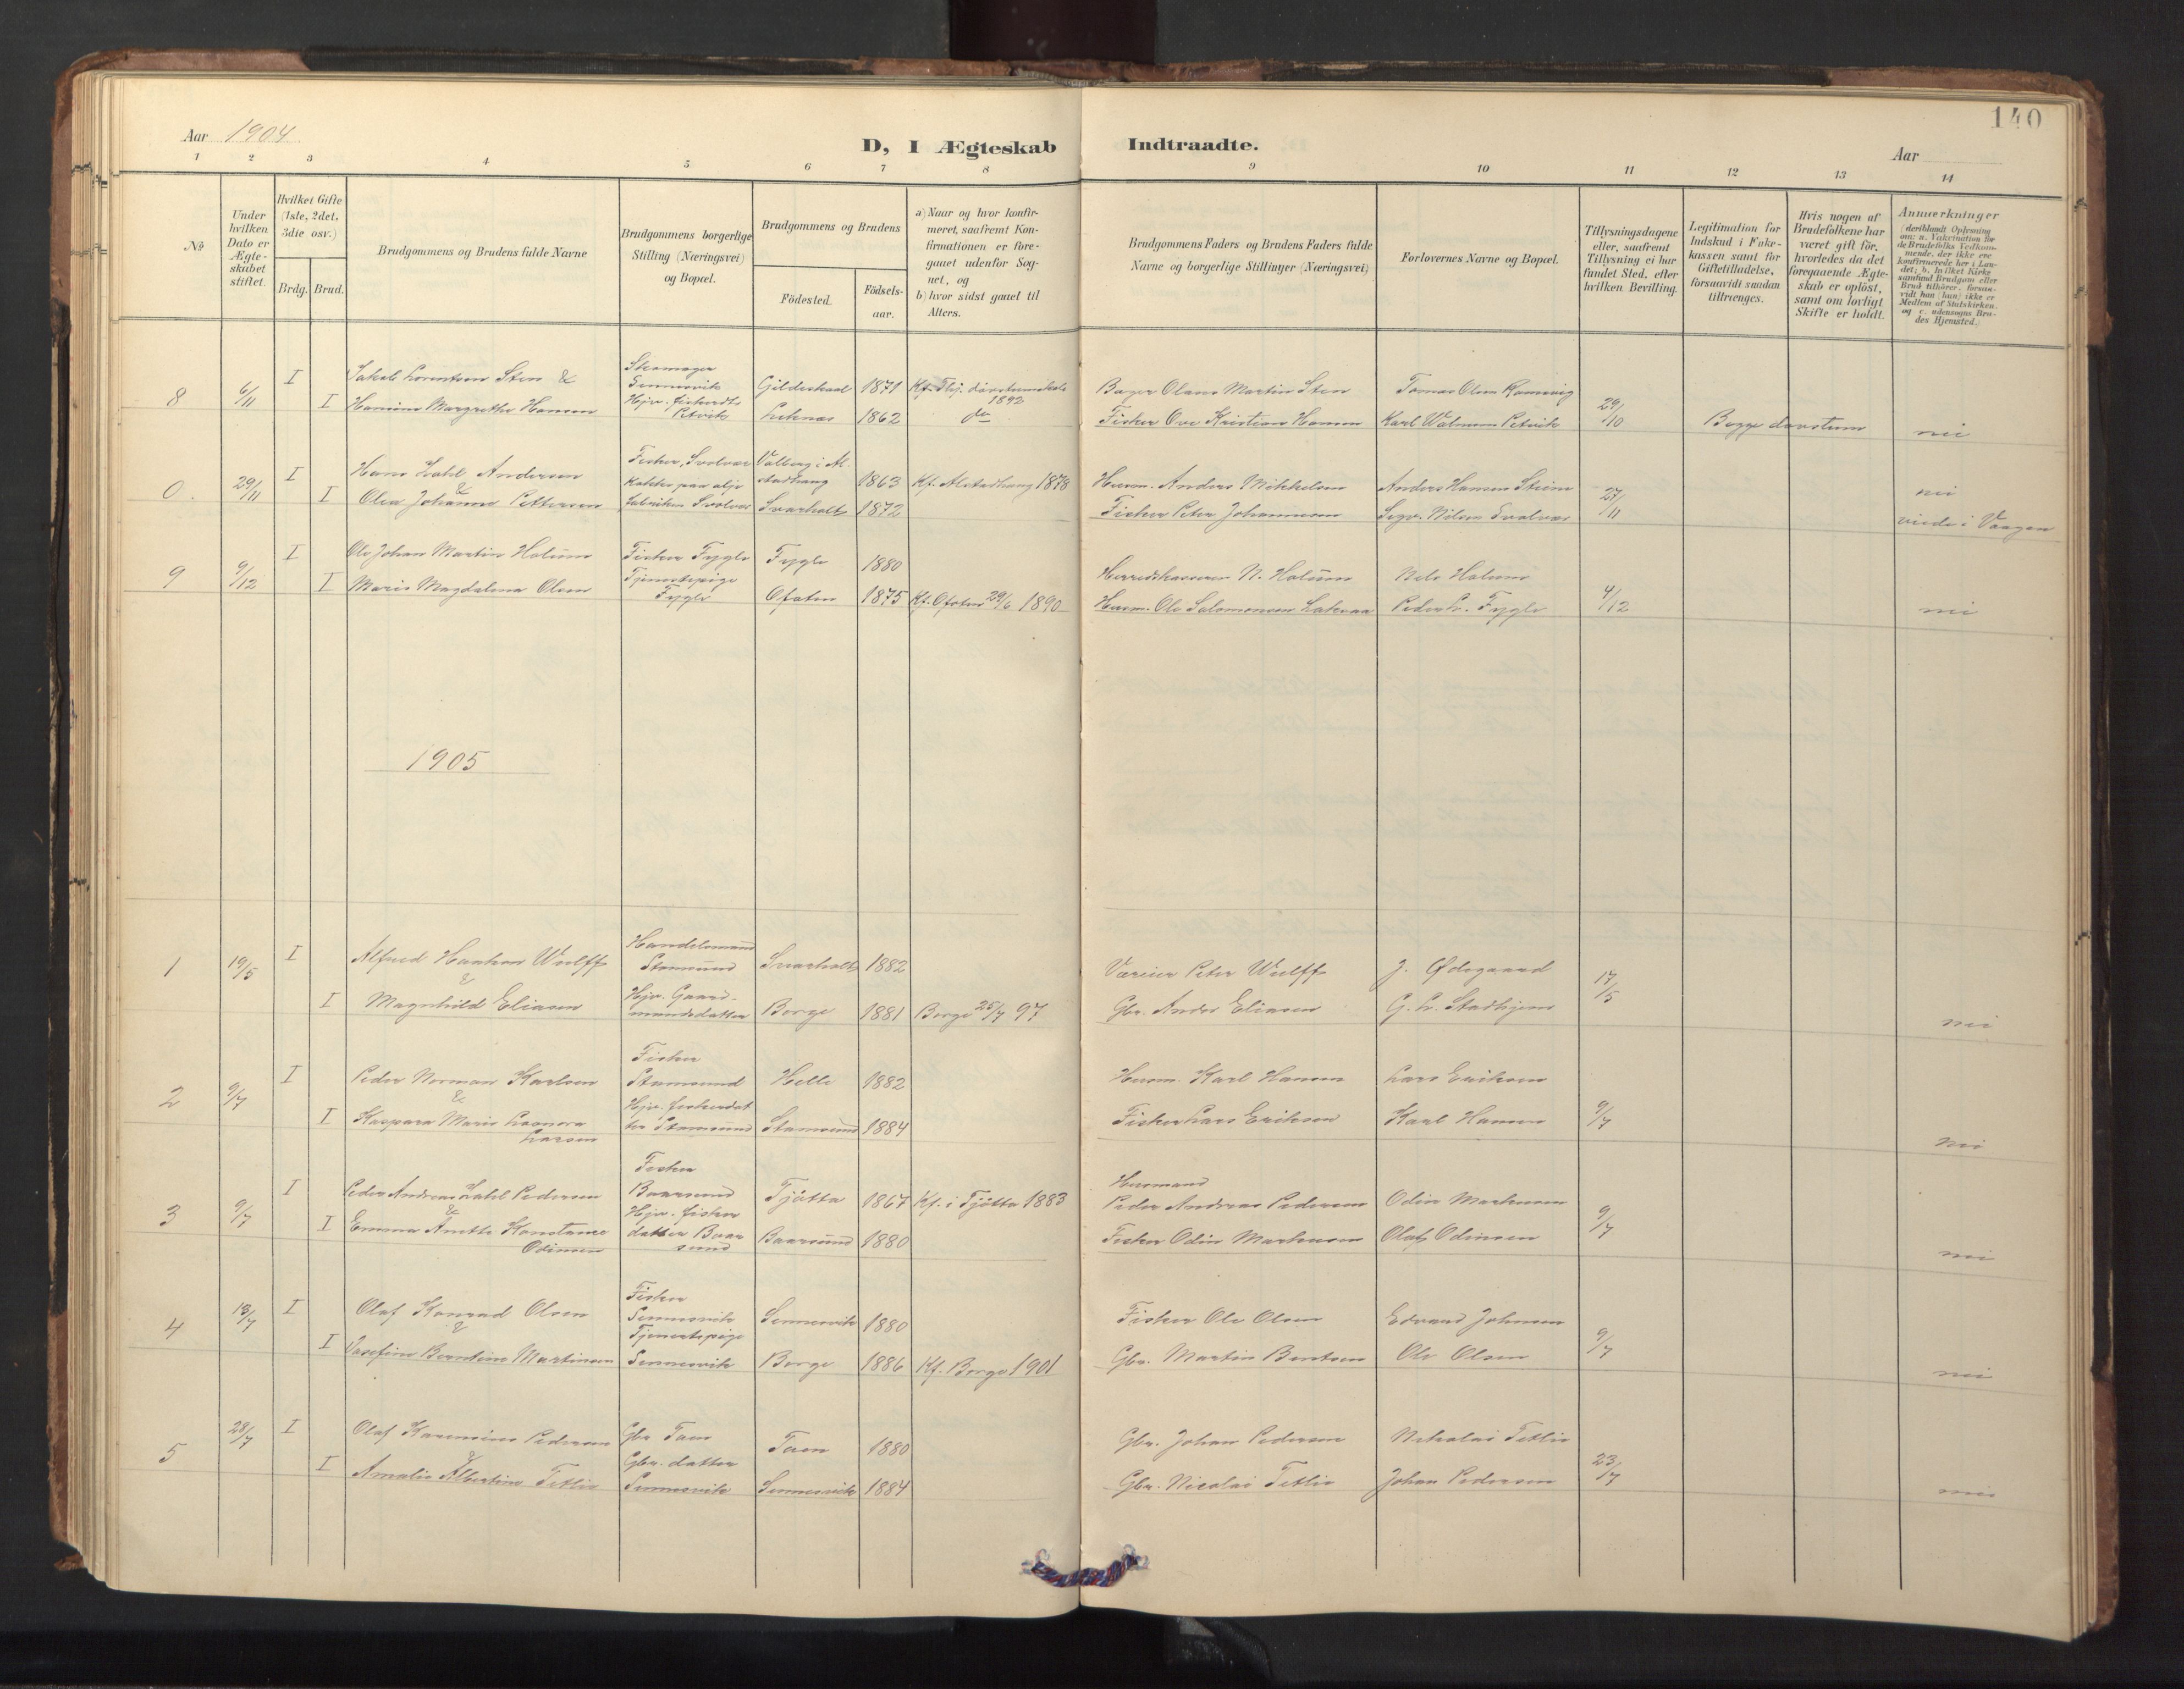 140
Aar 1904
D, I Ægteskab Indtraadte.
Aar
1 2 3 4 5 6 7 8 9 10 11 12 13 14
№
Under hvilken Dato er Ægteskabet stiftet.
Hvilket Gifte (1ste, 2det, 3die osv.)
Brdg. Brud.
Brudgommens og Brudens fulde Navne
Brudgommens borgerlige Stilling (Næringsvei) og Bopæl.
Brudgommens og Brudens
Födested.
Födselsaar.
a) Naar og hvor konfirmeret, saafremt Konfirmationen er foregaaet udenfor Sognet, og
b) hvor sidst gaaet til Alters.
Brudgommens Faders og Brudens Faders fulde Navne og borgerlige Stillinger (Næringsvei)
Forlovernes Navne og Bopæl.
Tillysningsdagene eller, saafremt Tillysning ei har fundet Sted, efter hvilken Bevilling.
Legitimation for Indskud i Enkekassen samt for Giftetilladelse, forsaavidt saadan tiltrænges.
Hvis nogen af Brudefolkene har været gift för, hvorledes da det foregaaende Ægteskab er oplöst, samt om lovligt Skifte er holdt.
Anmærkninger (deriblandt Oplysning om: a. Vakcination for de Brudefolks Vedkommende, der ikke ere konfirmerede her i Landet; b. hvilket Kirkesamfund Brudgom eller Brud tilhörer, forsaavidt han (hun) ikke er Medlem af Statskirken, og c. udensogns Brudes Hjemsted.)
8 6/11 I Jakob Lorentsen Sten & Skomager Sennesvik Gildeskaal 1871 Kf. Thj. dövstumskole 1892 Bager Olaus Martin Sten Tomas Olsen
I Hansine Margrethe Hansen Hjv. fiskerdtr Petvik Leknæs 1862 do Fisker Ove Kristian Hansen Karl Petvik 29/10 Begge døvstum nei
0. 29/11 I Hans Zahl Andersen Fisker, Svolvær Valberg i Alstadhaug 1863 Kf. Alstadhaug 1878 Husm. Anders Mikkelsen Anders Hansen nei
&
I Olea Johanne Pettersen Kokke paa oljefabriken Svolvær Svarholt 1872 Fisker Peter Johannesen Nilsen Svolvær 27/11 viede i Vaagan
9 9/12 I Ole Johan Martin Holum Fisker Fygle Fygle 1880 Herredskasserer N. Holum Nils Holum
I Marie Magdalena Olsen Tjenestepige Fygle Ofoten 1875 Kf. Ofoten 29/6 1890 Husm. Ole Salomonsen Peder L. Fygle 4/12 nei
1905
1 19/5 I Alfred Haakon Wulff Handelsmand Stamsund Svarholt 1882 Væreier Peter Wulff J. Ødegaard 17/5
&
I Magnhild Eliasen Hjv. Gaardmandsdatter Borge 1881 Borge 25/7 97 Gbr. Anders Eliasen G. L. nei
2 9/7 I Peder Norman Karlsen Fisker Stamsund Helle 1882 Husm. Karl Hansen Lars Eriksen
&
I Kaspara Marie Leonora Larsen Hjv. fiskerdatter Stamsund Stamsund 1884 Fisker Lars Eriksen Karl Hansen 9/7 nei
3 9/7 I Peder Andreas Zahl Pedersen Fisker Baarsund Tjötta 1867 Kf. i Tjötta 1883 Husmand Peder Andreas Pedersen Odin Markusen
&
I Emma Anette Konstanse Odinsen Hjv. fiskerdatter Baarsund Baarsund 1880 Fisker Odin Markusen Olaf Odinsen 9/7 nei
4 13/7 I Olaf Konrad Olsen Fisker Sennesvik Sennesvik 1880 Fisker Ole Olsen Edvard Johnsen
&
I Josefine Berntine Martinsen Tjenestepige Sennesvik Borge 1886 Kf. Borge 1901 Gbr. Martin Berntsen Ole Olsen 9/7 nei
5 28/7 I Olaf Karenius Pedersen Gbr Taen Taen 1880 Gbr. Johan Pedersen Nikolai Tetlie
&
I Amalie Albertine Tetlie Gbr. datter Sennesvik Sennesvik 1884 Gbr. Nicolai Tetlie Johan Pedersen 23/7 nei